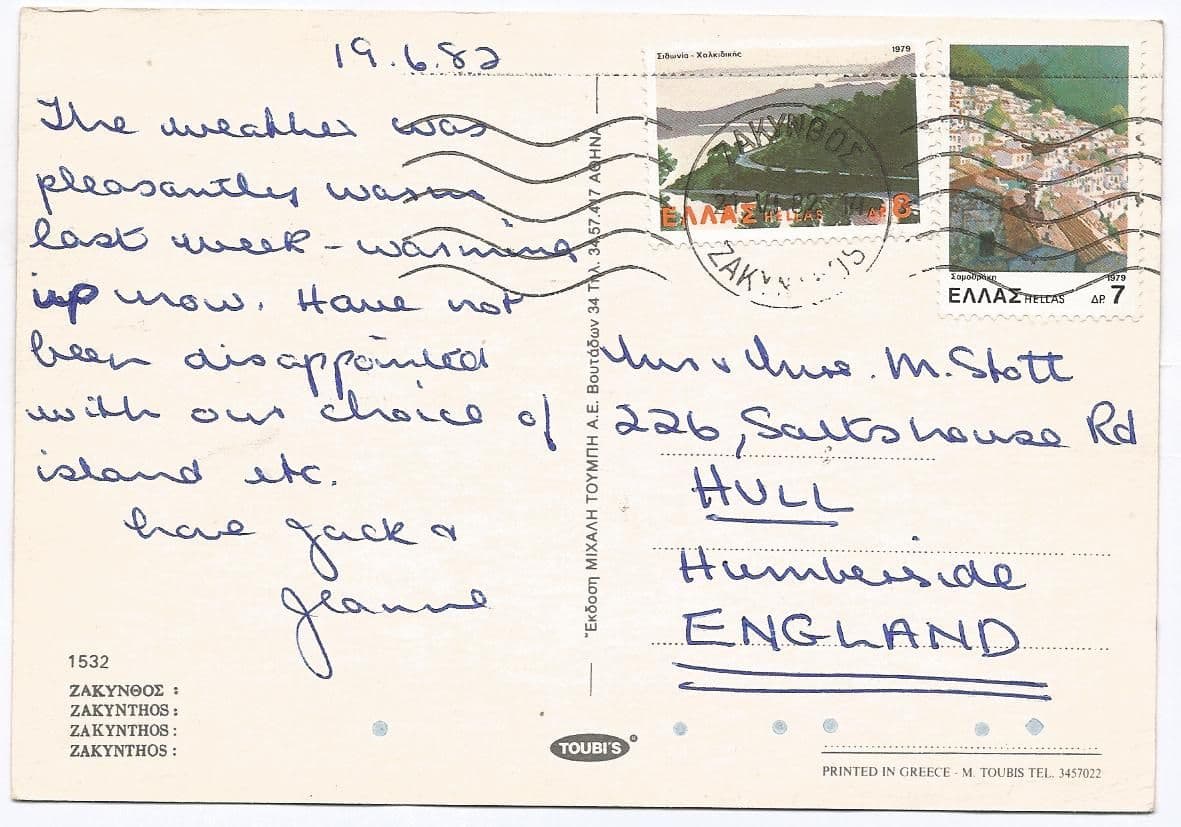 19.6.82
The weather was
pleasantly warm
last week - warming
up now. Have not
been disappointed
with our choice of
island etc.
Love Jack &
Jeanne
1532
ΖΑΚΥΝΘΟΣ :
ZAKYNTHOS :
ZAKYNTHOS :
ZAKYNTHOS :
Έκδοση ΜΙΧΑΛΗ ΤΟΥΜΠΗ Α.Ε. Βουτάδων 34 Τηλ. 34.57.417 ΑΘΗΝΑ
TOUBI'S
Σιθωνία - Χαλκιδικής 1979
ΕΛΛΑΣ HELLAS ΔΡ. 8
ΖΑΚΥΝΘΟΣ
VI 82
Σαμοθράκη 1979
ΕΛΛΑΣ HELLAS ΔΡ. 7
Mr & Mrs. M. Stott
226, Saltshouse Rd
HULL
Humberside
ENGLAND
PRINTED IN GREECE - M. TOUBIS TEL. 3457022